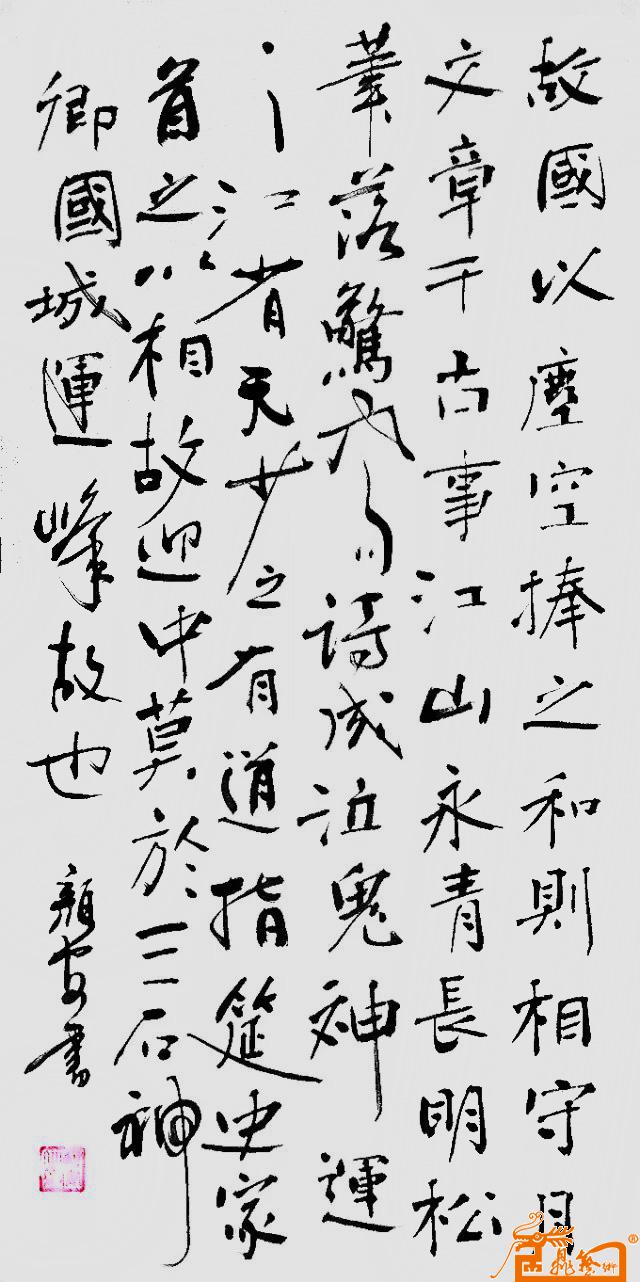 故國以塵空捧之和則相守月
文章千古事江山永青長明松
筆落驚風雨詩成泣鬼神運
江省天步之有道指筵史家
首之以相故迎中莫於三石神
卿國城運峰故也
書